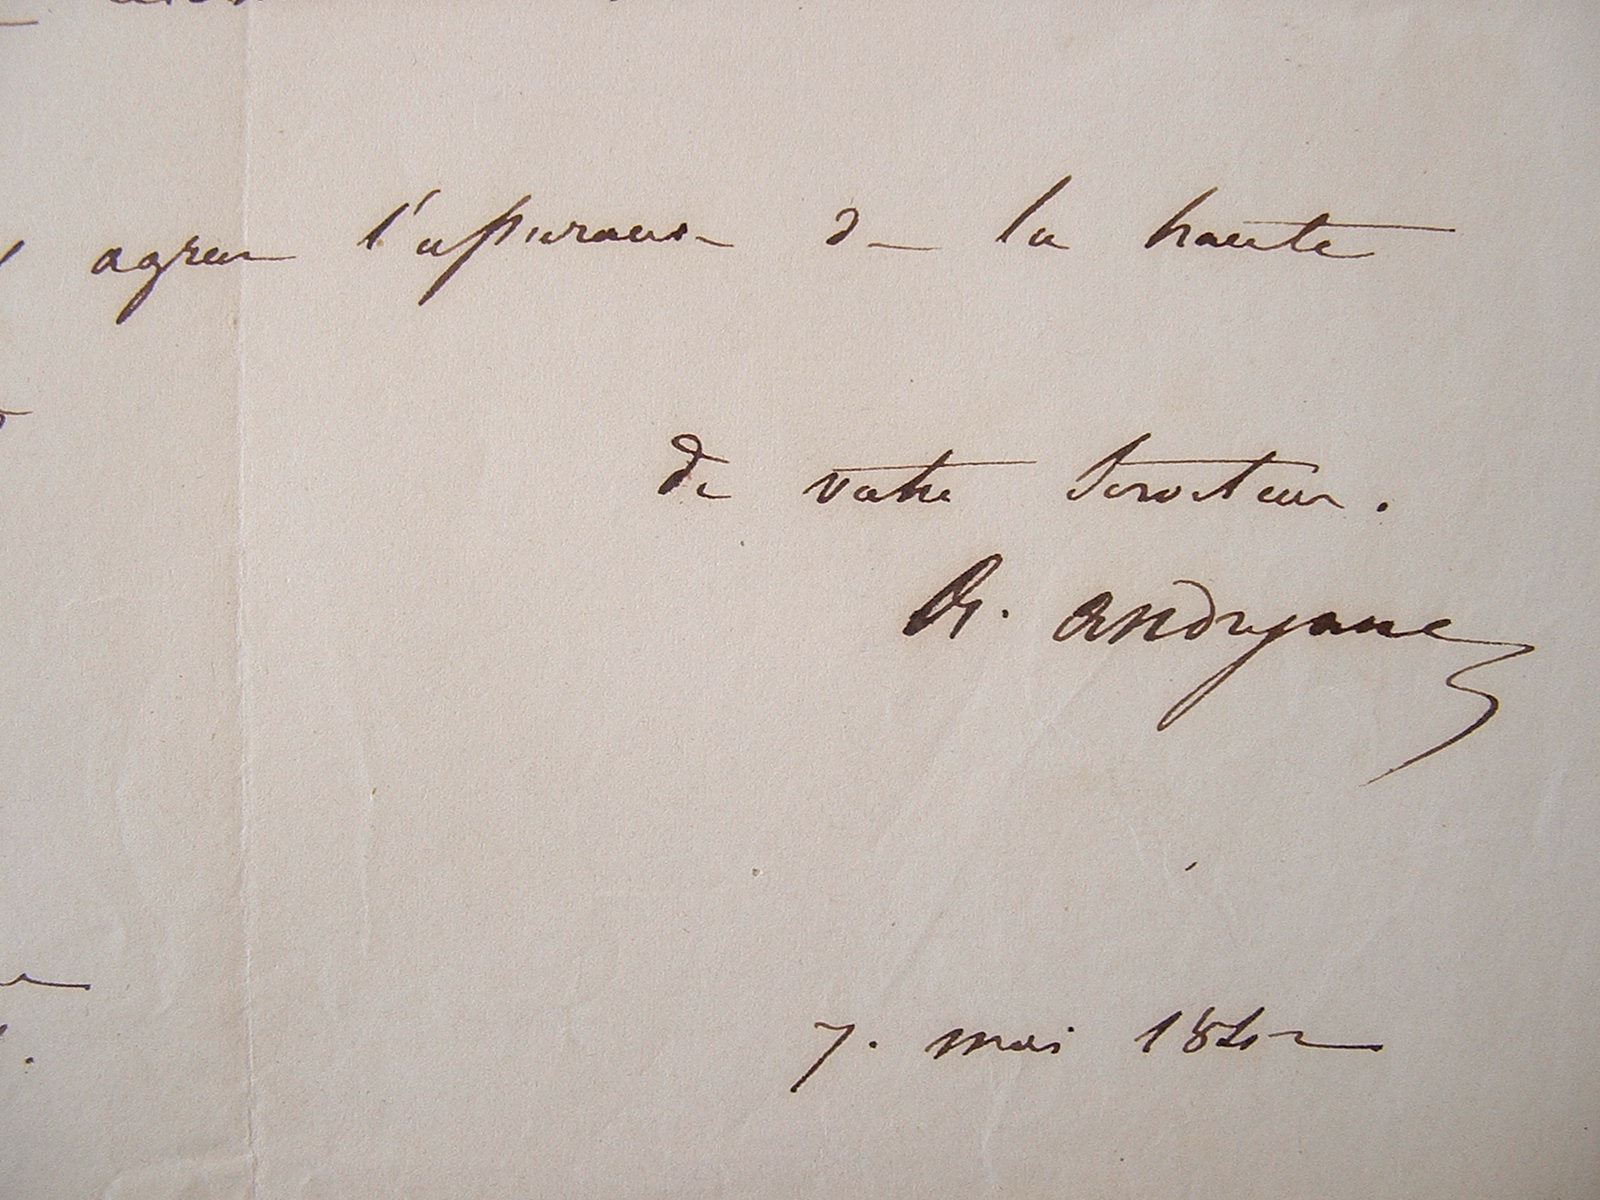 agréer l'assurance de la haute
de votre Serviteur.
A. Andryane
7. mai 1842